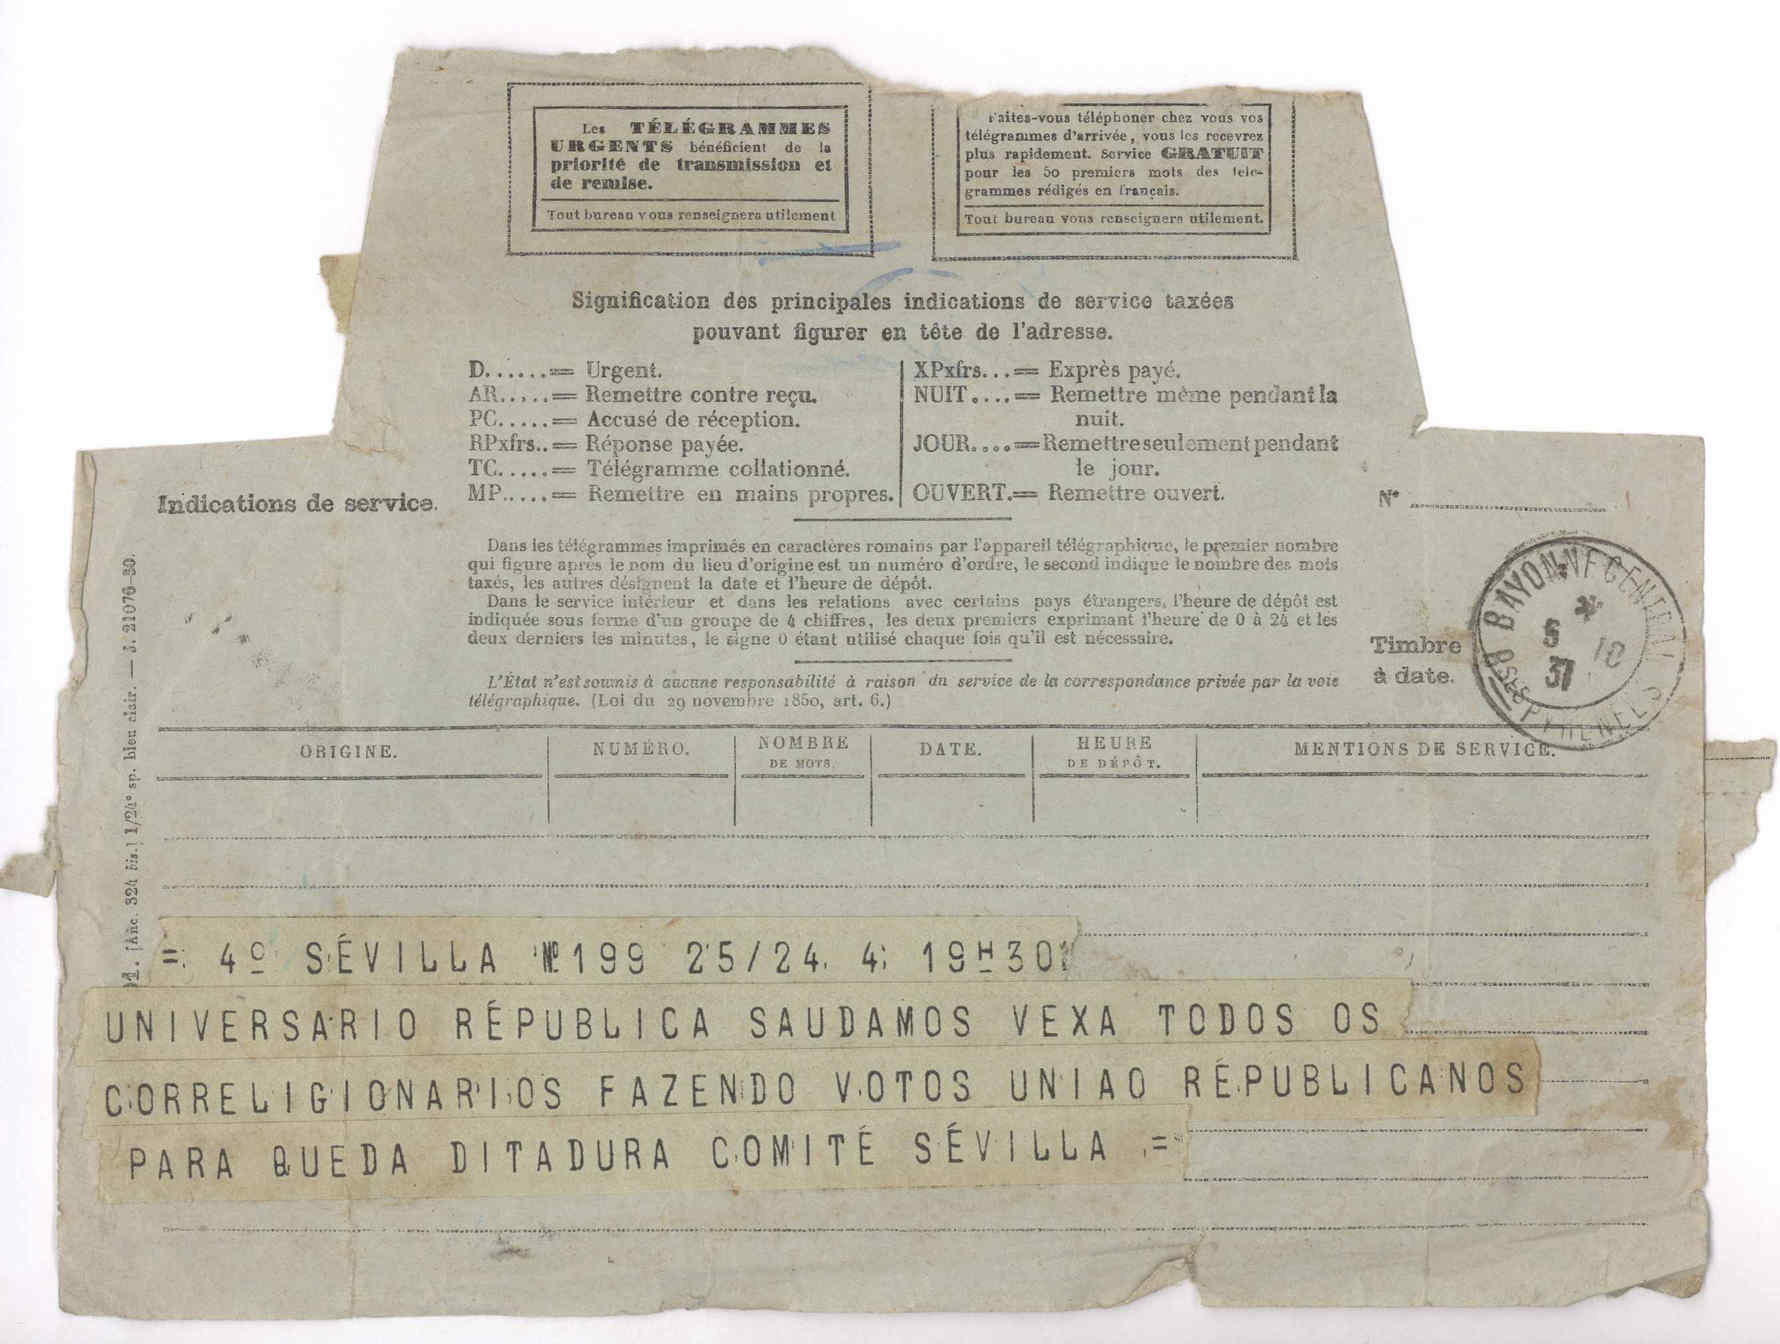 Les TÉLÉGRAMMES
URGENTS bénéficient de la
priorité de transmission et
de remise.
Tout bureau vous renseignera utilement
Faites-vous téléphoner chez vous vos
télégrammes d'arrivée, vous les recevrez
plus rapidement. Service GRATUIT
pour les 50 premiers mots des télé-
grammes rédigés en français.
Tout bureau vous renseignera utilement.
Signification des principales indications de service taxées
pouvant figurer en tête de l'adresse.
D......= Urgent.
AR.....= Remettre contre reçu.
PC.....= Accusé de réception.
RPxfrs..= Réponse payée.
TC.....= Télégramme collationné.
MP.....= Remettre en mains propres.
XPxfrs...= Exprès payé.
NUIT....= Remettre même pendant la
nuit.
JOUR....= Remettre seulement pendant
le jour.
OUVERT.= Remettre ouvert.
Indications de service.
N°
Dans les télégrammes imprimés en caractères romains par l'appareil télégraphique, le premier nombre
qui figure après le nom du lieu d'origine est un numéro d'ordre, le second indique le nombre des mots
taxés, les autres désignent la date et l'heure de dépôt.
Dans le service intérieur et dans les relations avec certains pays étrangers, l'heure de dépôt est
indiquée sous forme d'un groupe de 4 chiffres, les deux premiers exprimant l'heure de 0 à 24 et les
deux derniers les minutes, le signe 0 étant utilisé chaque fois qu'il est nécessaire.
L'État n'est soumis à aucune responsabilité à raison du service de la correspondance privée par la voie
télégraphique. (Loi du 29 novembre 1850, art. 6.)
Timbre
à date.
BAYONNE CENTRAL
5 10
31
BSES PYRENEES
[Anc. 324 bis.] 1/24° sp. bleu clair. — J. 21076-30.
ORIGINE. NUMÉRO. NOMBRE DE MOTS. DATE. HEURE DE DÉPÔT. MENTIONS DE SERVICE.
= 4º SÉVILLA Nº199 25/24 4 19H30
UNIVERSARIO RÉPUBLICA SAUDAMOS VEXA TODOS OS
CORRELIGIONARIOS FAZENDO VOTOS UNIAO RÉPUBLICANOS
PARA QUEDA DITADURA COMITÉ SÉVILLA =